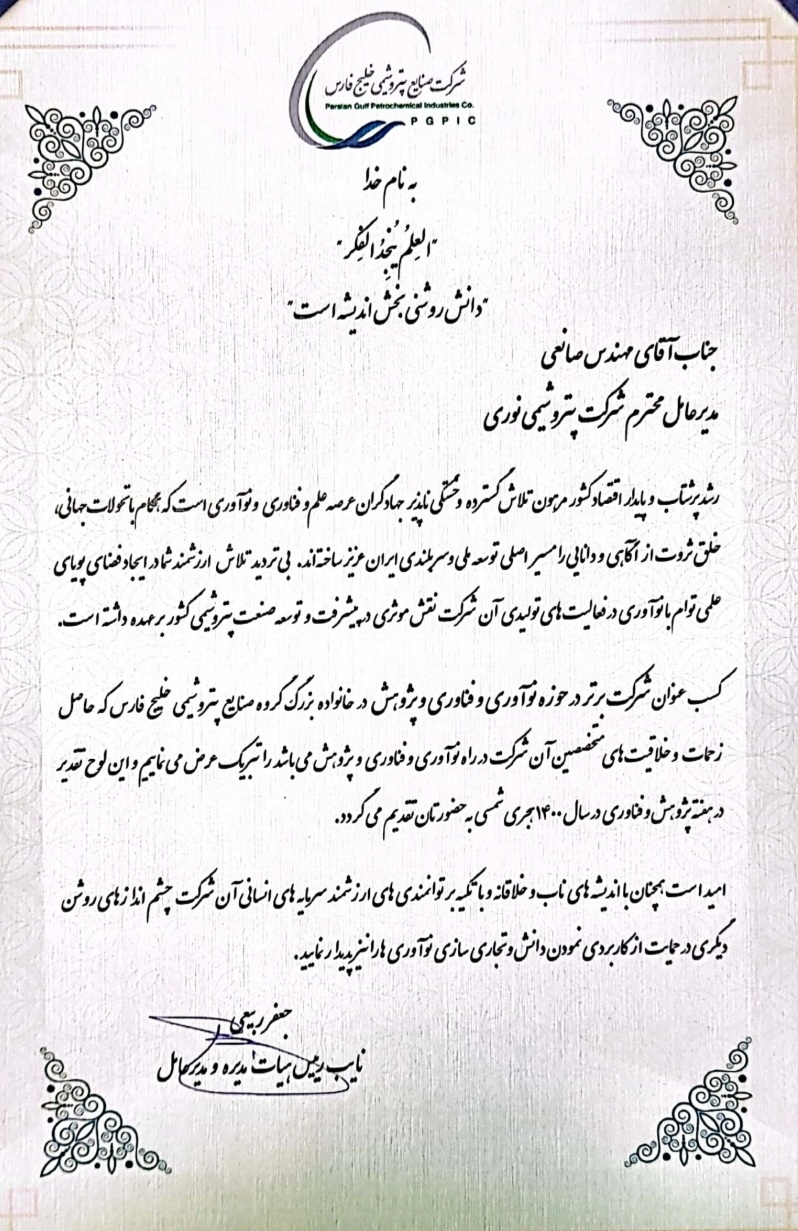 شرکت صنایع پتروشیمی خلیج فارس
Persian Gulf Petrochemical Industries Co.
PGPIC
به نام خدا
"العِلمُ یُنجِدُ الفِکر"
"دانش روشنی بخش اندیشه است"
جناب آقای مهندس صانعی
مدیرعامل محترم شرکت پتروشیمی نوری
رشد پرشتاب و پایدار اقتصاد کشور مرهون تلاش گسترده و خستگی ناپذیر جهادگران عرصه علم و فناوری و نوآوری است که همگام با تحولات جهانی،
خلق ثروت از آگاهی و دانایی را مسیر اصلی توسعه ملی و سربلندی ایران عزیز ساخته‌اند. بی تردید تلاش ارزشمند شما در ایجاد فضای پویای
علمی توام با نوآوری در فعالیت های تولیدی آن شرکت نقش موثری در پیشرفت و توسعه صنعت پتروشیمی کشور بر عهده داشته است.
کسب عنوان شرکت برتر در حوزه نوآوری و فناوری و پژوهش در خانواده بزرگ گروه صنایع پتروشیمی خلیج فارس که حاصل
زحمات و خلاقیت های متخصصین آن شرکت در راه نوآوری و فناوری و پژوهش می باشد را تبریک عرض می نماییم و این لوح تقدیر
در هفته پژوهش و فناوری در سال ۱۴۰۰ هجری شمسی به حضورتان تقدیم می گردد.
امید است همچنان با اندیشه های ناب و خلاقانه و با تکیه بر توانمندی های ارزشمند سرمایه های انسانی آن شرکت چشم اندازهای روشن
دیگری در حمایت از کاربردی نمودن دانش و تجاری سازی نوآوری ها را نیز پدیدار نمایید.
جعفر ربیعی
نایب رییس هیات مدیره و مدیرعامل